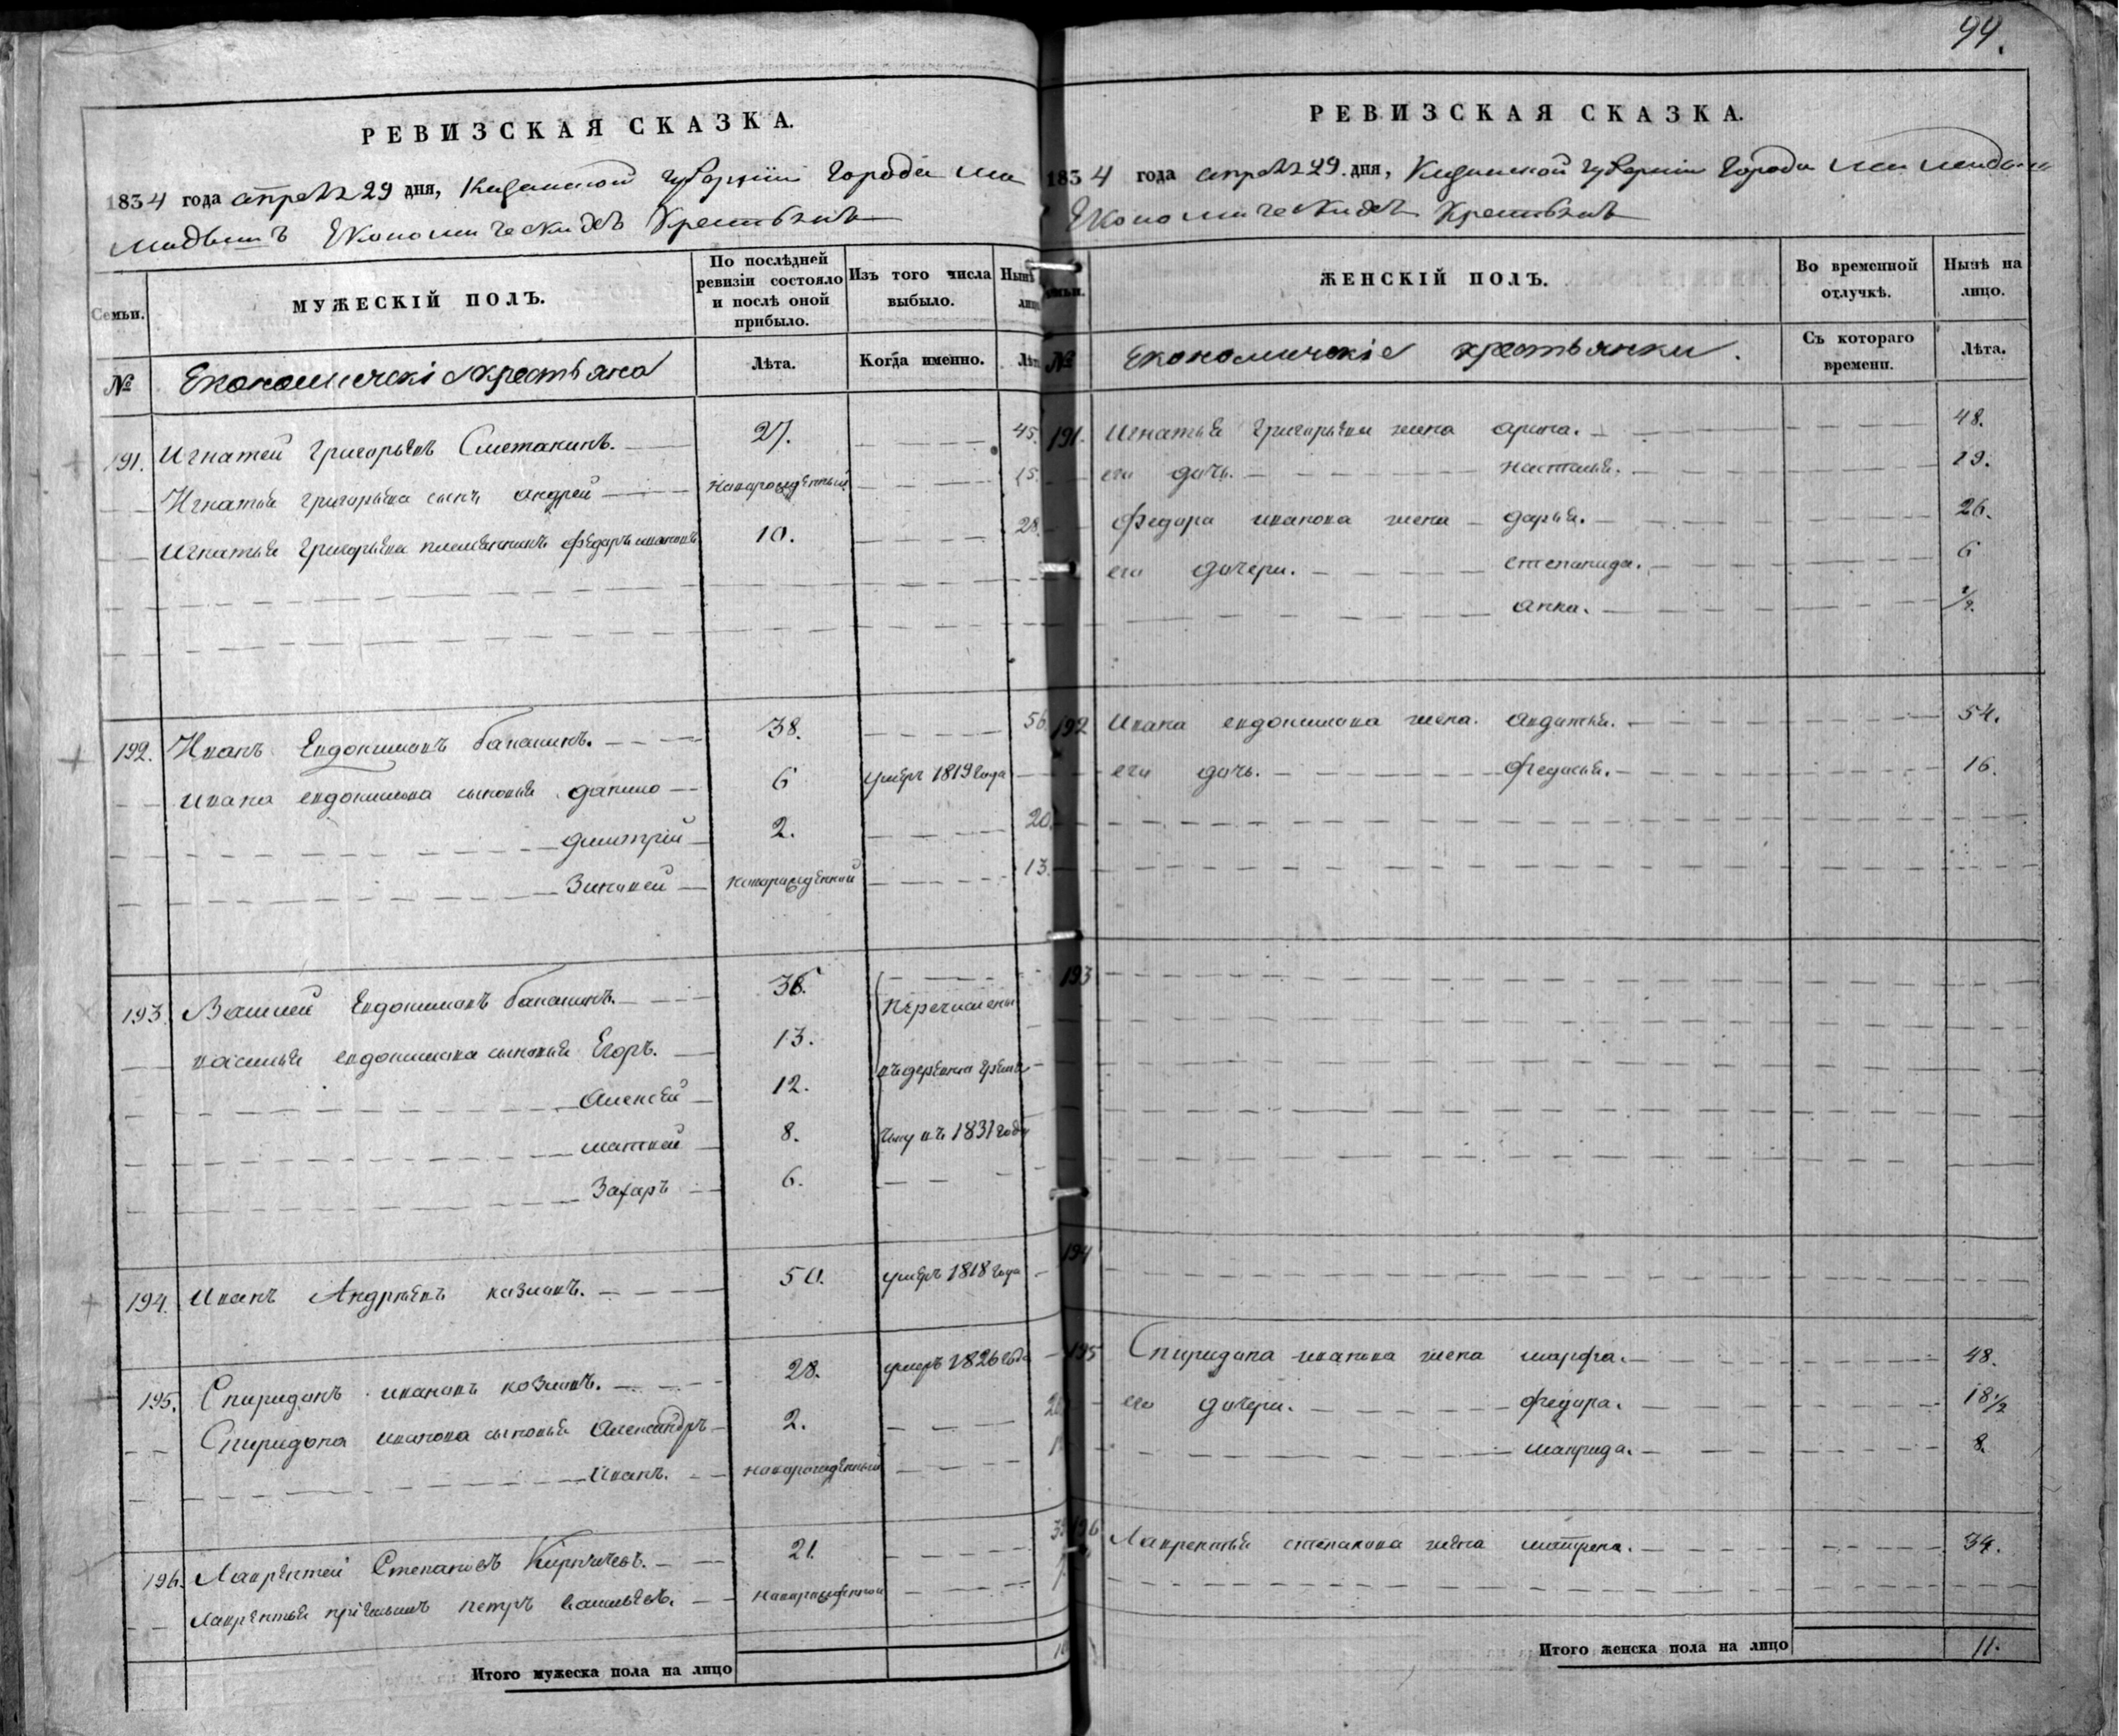 94.
РЕВИЗСКАЯ СКАЗКА.
1834 года апреля 29 дня, Казанской губернии города Ма
мадыша Економическихъ Крестьянъ
Семьи.
МУЖЕСКІЙ ПОЛЪ.
По послѣдней ревизіи состояло и послѣ оной прибыло.
Изъ того числа выбыло.
Нынѣ
№
Економическіе крестьяна
Лѣта.
Когда именно.
Лѣт
191. Игнатей Григорьевъ Сметанинъ. 27. 45.
Игнатья Григорьева сынъ андрей новорожденный 15.
Игнатья Григорьева племянникъ федоръ ивановъ 10. 28.
192. Иванъ Евдокимовъ бакалинъ. 38. 56
ивана евдокимова сыновья данило 6 умеръ 1819 года
дмитрій 2. 20.
Зиновей новорожденный 13.
193. Василей Евдокимовъ бакалинъ. 36. перечислены
василья евдокимова сыновья Егоръ. 13.
Алексей 12. въ деревню
матвей 8. въ 1831 году
Захаръ 6.
194. Иванъ Андрѣевъ козловъ. 50. умеръ 1818 года
195. Спиридонъ ивановъ козловъ. 28. умеръ 1826 года
Спиридона иванова сыновья Александръ 2. 20
Иванъ. новорожденный
196. Лаврентей Степановъ Кирпичевъ. 21.
Лаврентья приемышъ петръ васильевъ. новорожденной
Итого мужеска пола на лицо
РЕВИЗСКАЯ СКАЗКА.
1834 года апреля 29. дня, Казанской губернии города Мамадыша
Економическихъ Крестьянъ
семьи.
ЖЕНСКІЙ ПОЛЪ.
Во временной отлучкѣ.
Нынѣ на лицо.
№
Економическіе крестьянки.
Съ котораго времени.
Лѣта.
191. Игнатья Григорьева жена арина. 48.
его дочь. наталья. 19.
федора иванова жена дарья. 26.
его дочери. степанида. 6
анна. 1/2.
192 Ивана евдокимова жена. авдотья. 54.
его дочь. федосья. 16.
193
194
195 Спиридона иванова жена марфа. 48.
его дочери. федора. 18 1/2
маврида. 8.
196 Лаврентья степанова жена матрена. 34.
Итого женска пола на лицо 11.